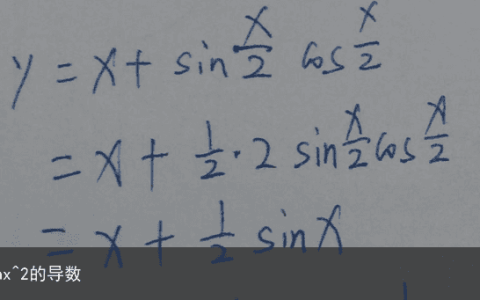 y = x + sin x/2 cos x/2
= x + 1/2 · 2 sin x/2 cos x/2
= x + 1/2 sin x
x^2的导数